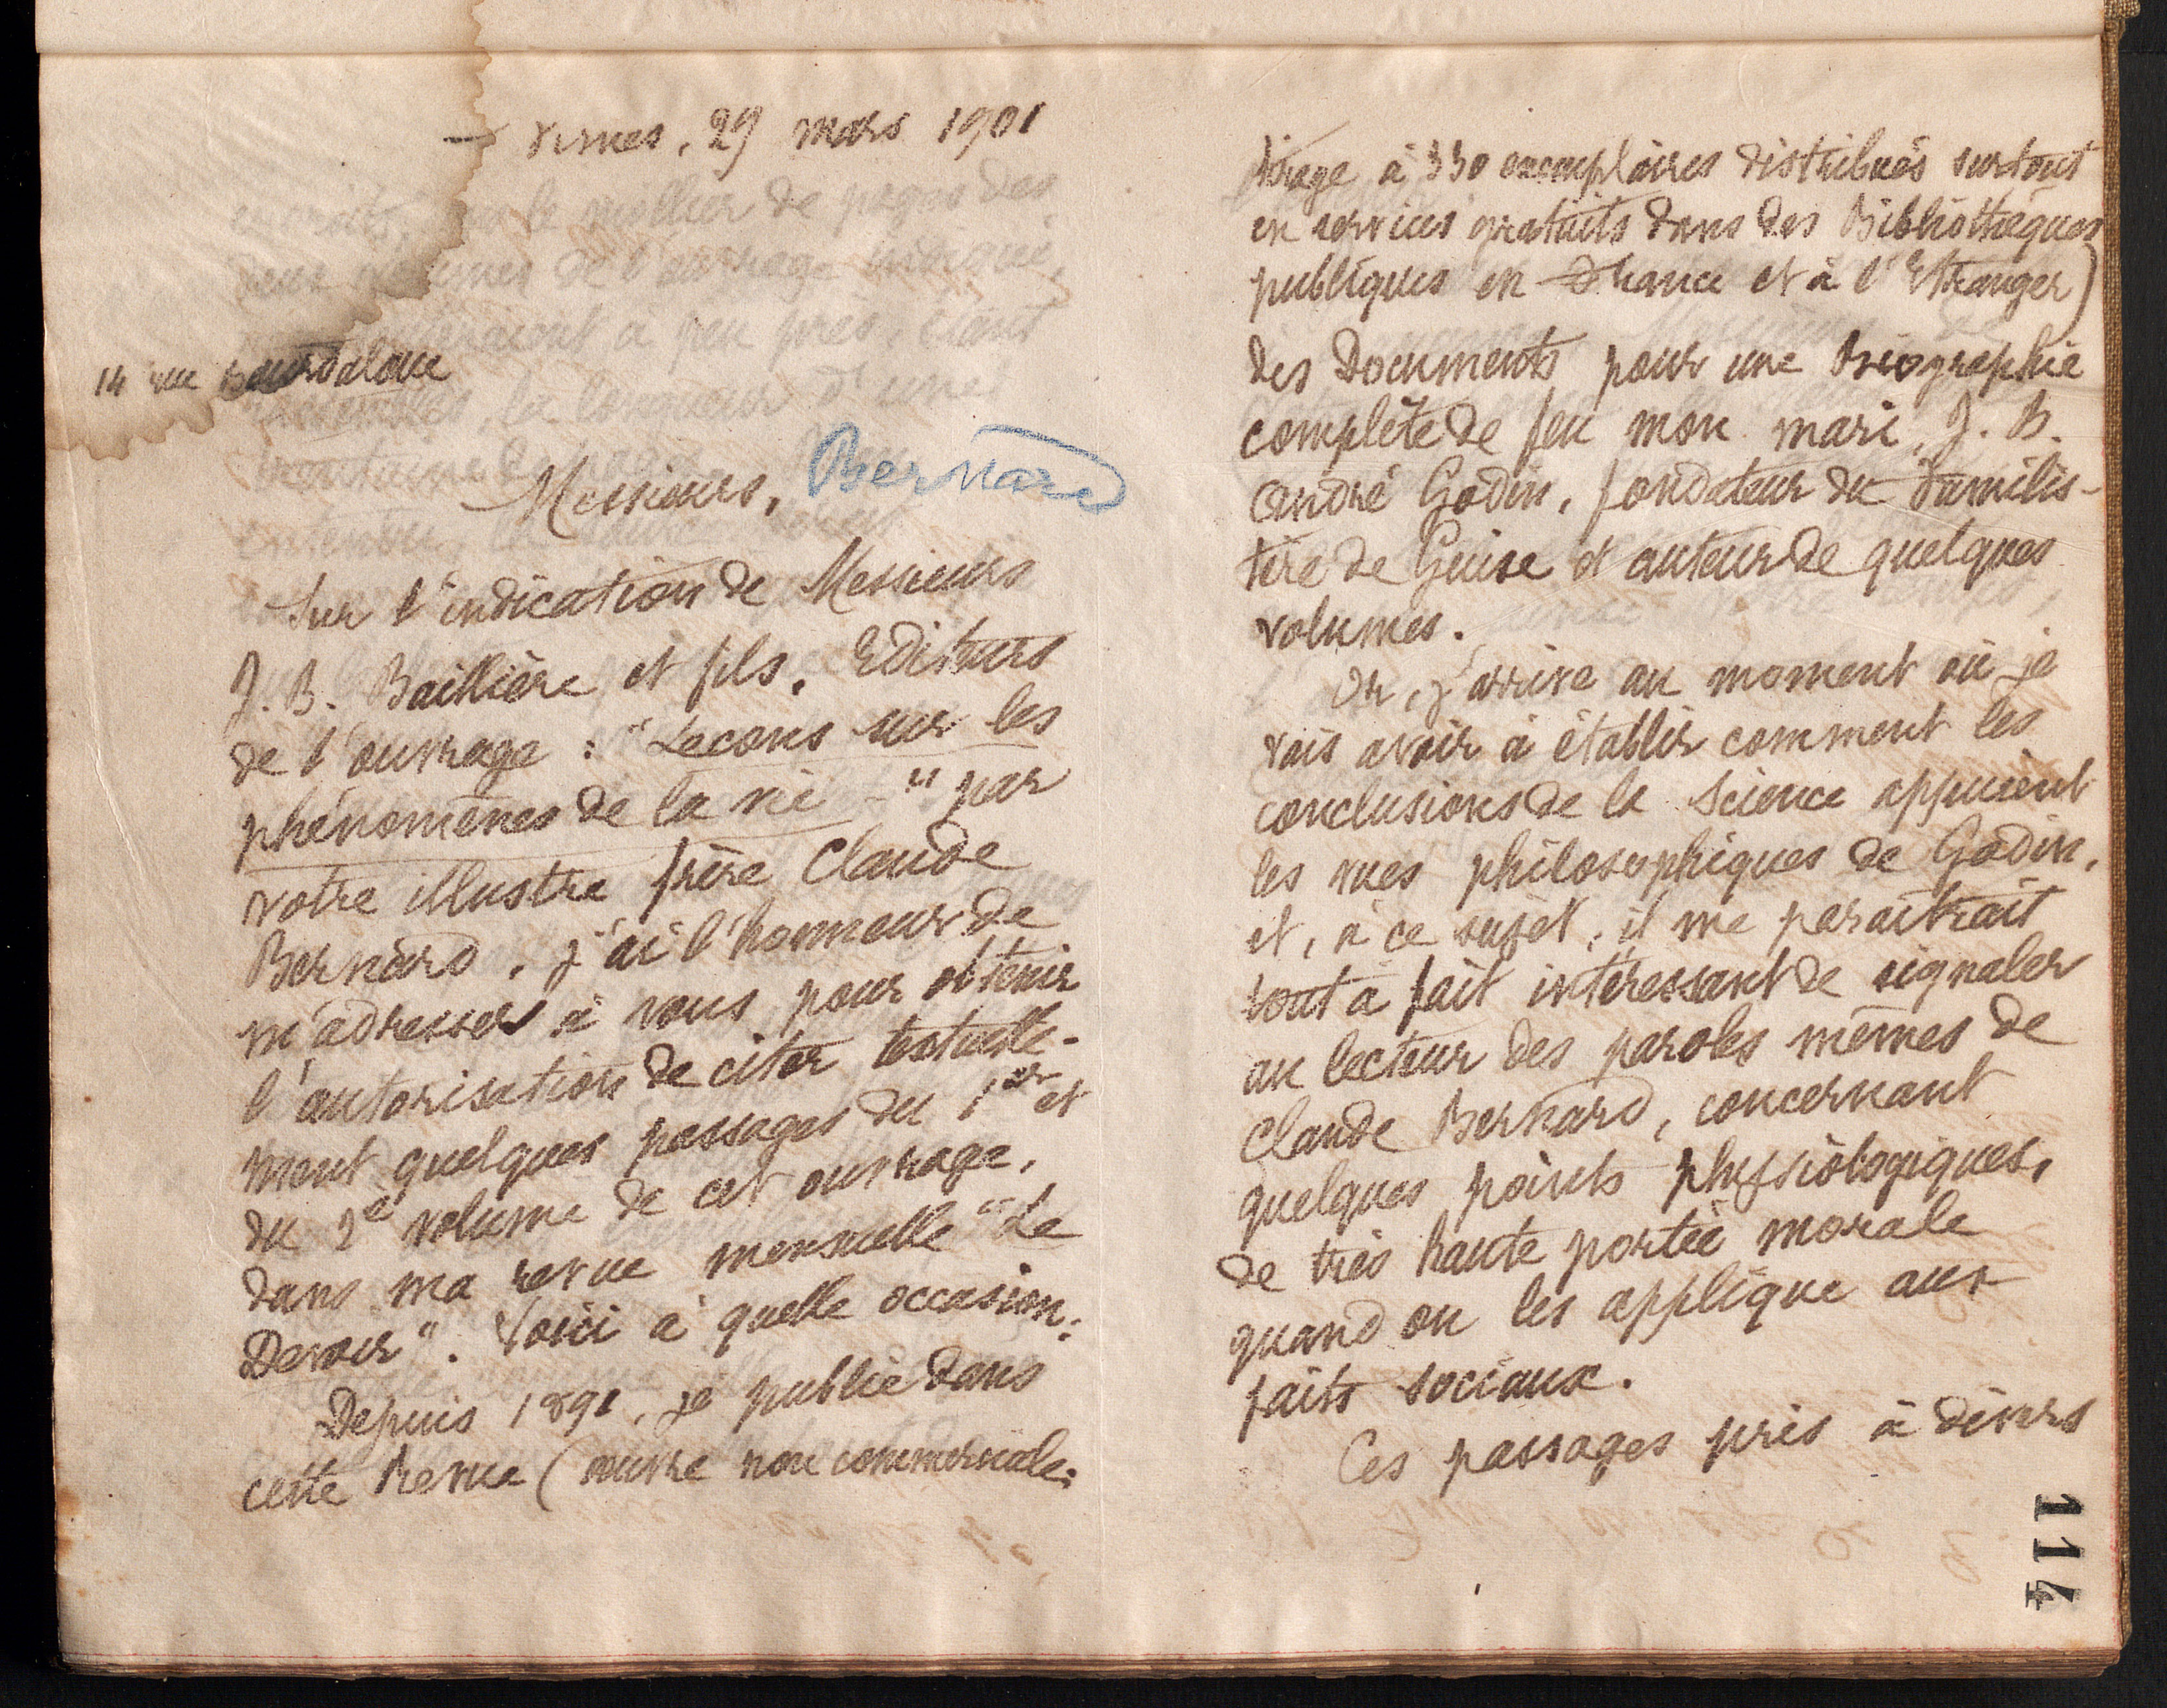 Nimes, 29 mars 1901
14 rue Bourdaloue
Messieurs, Bernard
Sur l'indication de Messieurs
J. B. Baillière et fils, Editeurs
de l'ouvrage : "Lecons sur les
phénomènes de la vie - " par
votre illustre frère Claude
Bernard, j'ai l'honneur de
m'adresser à vous pour obtenir
l'autorisation de citer textuelle-
ment quelques passages du 1er et
du 2e volume de cet ouvrage,
dans ma revue mensuelle "Le
Devoir". Voici à quelle occasion :
Depuis 1891, je publie dans
cette Revue (œuvre non commerciale;
tirage à 330 exemplaires distribués surtout
en services gratuits dans des Bibliothèques
publiques en France et à l'Etranger)
des Documents pour une Biographie
complète de feu mon mari, J. B.
André Godin, fondateur du Familis-
tère de Guise et auteur de quelques
volumes.
Or, j'arrive au moment où je
vais avoir à établir comment les
conclusions de la Science appuient
les vues philosophiques de Godin,
et, à ce sujet, il me paraîtrait
tout à fait intéressant de signaler
au lecteur des paroles mêmes de
Claude Bernard, concernant
quelques points physiologiques,
de très haute portée morale
quand on les applique aux
faits sociaux.
Ces passages pris à divers
114